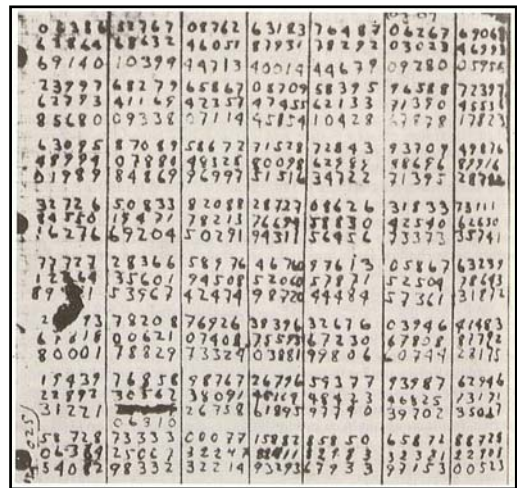 08762 63183 76487 06267
68632 46051 87931 78292 03023 46993
69140 10399 44713 40014 44679 09280 05956
23997 68279 65867 05709 58395 96588 72397
62793 41169 42357 47455 62133 91390
85680 09338 07114 45154 10428 67878 17823
63095 87089 58672 71528 72843 93709 49876
07880 48325 80098 62985 48696 89916
01989 84869 96997 51516 34722 71395
32726 50833 82088 28727 08626 31833 73111
44550 19471 78213 76694 58830 42540 62630
16276 69204 50291 94311 56456 73373 35741
77727 28366 58976 46760 97613 05867 63239
35601 94508 52060 57871 52504 78643
53967 42474 98720 44484 57361 31872
78208 76926 38396 32676 03946 41483
00621 07408 75593 67230 67808 81792
80001 78829 73324 03881 99806 60744 28175
19439 76858 98767 26796 59377 93987 62946
22892 38091 48423 13171
31221 26758 61895 97790 39702 35067
06310
58728 73333 00077 15882 85850 65872 88728
25061 32247 32381
54082 98332 32214 93293 67933 97153 00523